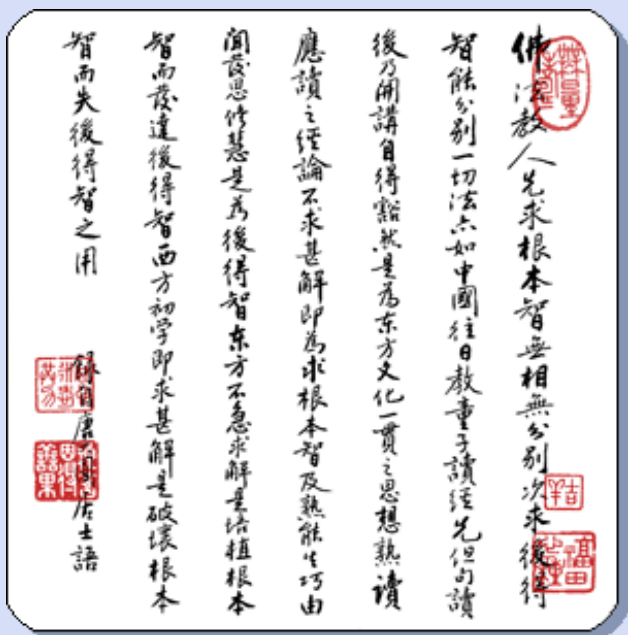 佛法教人先求根本智無相無分別次求後得
智能分別一切法亦如中國往日教童子讀經先但句讀
後乃開講自得豁然是為东方文化一貫之思想熟讀
應讀之經論不求甚解即為求根本智及熟能生巧由
聞發思修慧是為後得智东方不急求解是培植根本
智而發達後得智西方初学即求甚解是破壞根本
智而失後得智之用
錄自唐居士語
吉祥